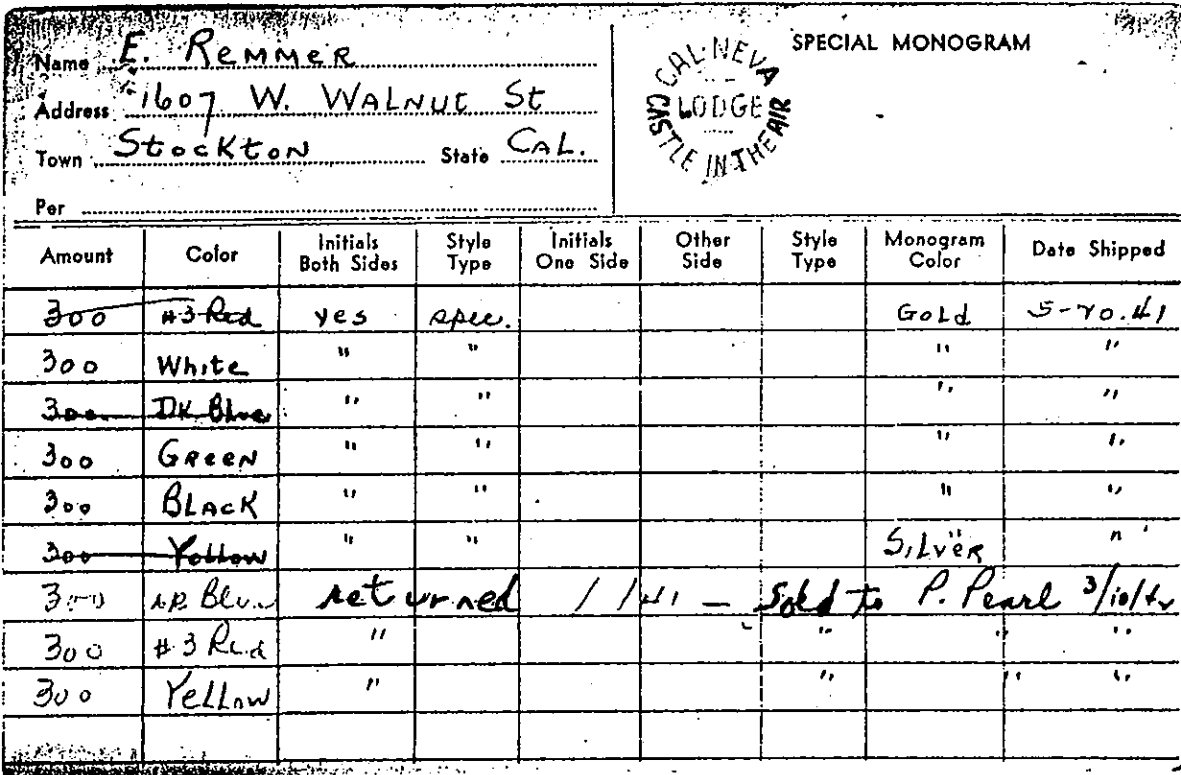 Name E. Remmer
Address 1607 W. Walnut St
Town Stockton State Cal.
Per
CAL-NEVA LODGE CASTLE IN THE AIR
SPECIAL MONOGRAM
Amount Color Initials Both Sides Style Type Initials One Side Other Side Style Type Monogram Color Date Shipped
300 #3 Red yes spec. Gold
300 White " " " "
300 DK Blue " " " "
300 Green " " " "
300 Black " " " "
300 Yellow " " Silver "
300 Blue returned — Sold to P. Pearl
300 #3 Red " " " "
300 Yellow " " " "